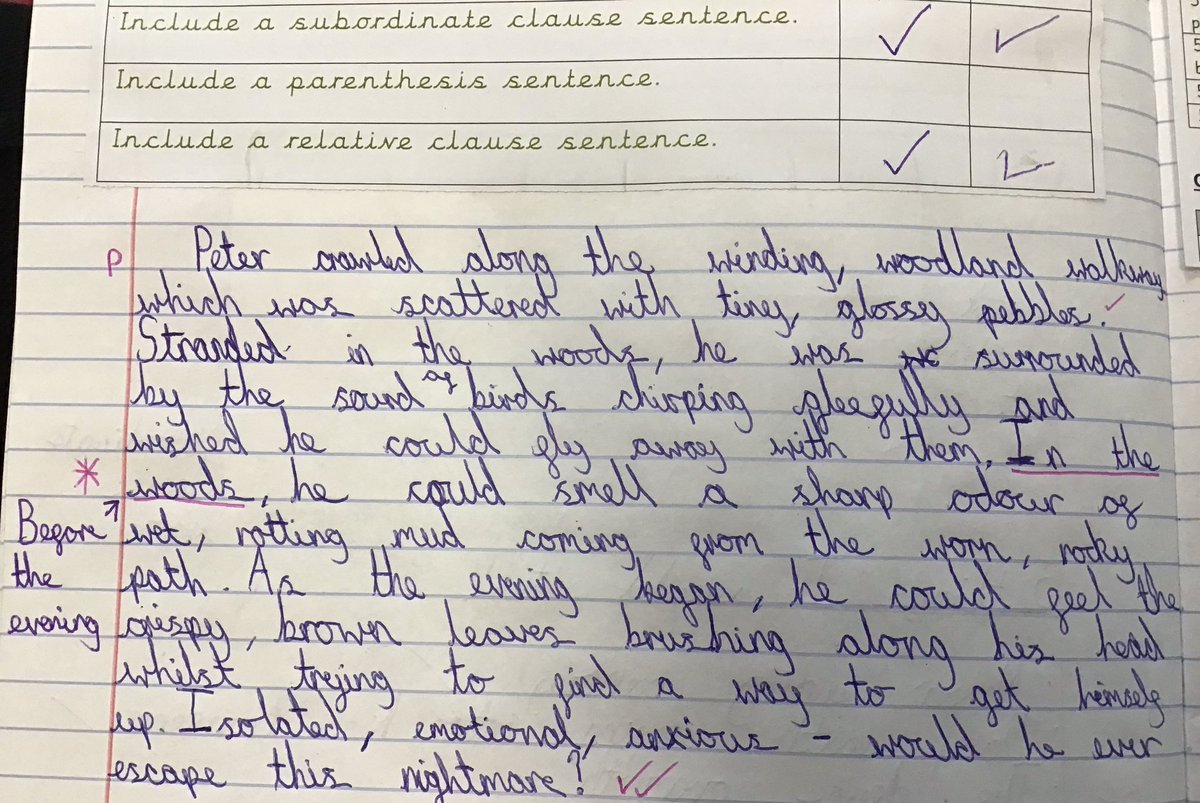 Include a subordinate clause sentence.
Include a parenthesis sentence.
Include a relative clause sentence.
P
Peter crawled along the winding, woodland walkway
which was scattered with tiny, glossy pebbles.
Stranded in the woods, he was surrounded
by the sound of birds chirping gleefully and
wished he could fly away with them. In the
* woods, he could smell a sharp odour of
Before wet, rotting mud coming from the worn, rocky
the path. As the evening began, he could feel the
evening crispy, brown leaves brushing along his head
whilst trying to find a way to get himself
up. Isolated, emotional, anxious - would he ever
escape this nightmare?